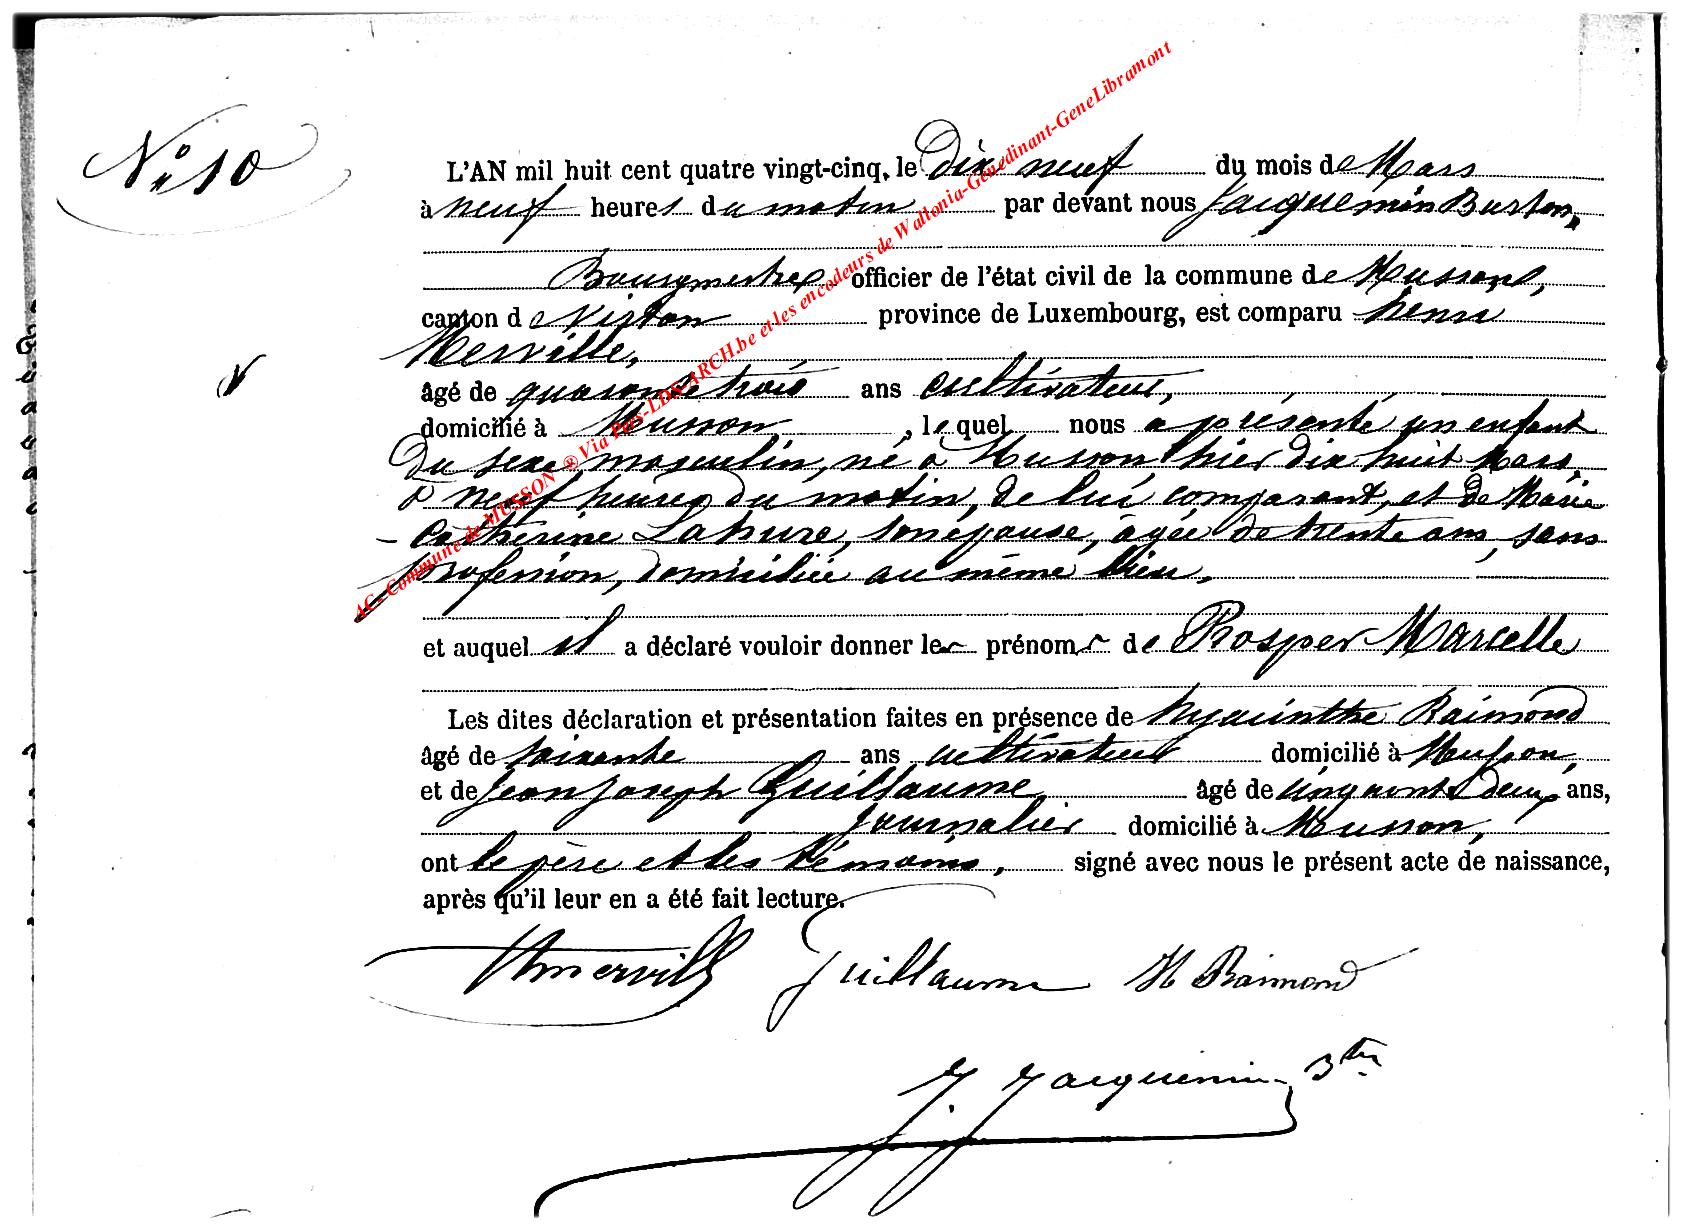 N° 10
L'AN mil huit cent quatre vingt-cinq, le Dix neuf du mois de Mars
à neuf heures du matin par devant nous Jacquemin Burton,
Bourgmestre officier de l'état civil de la commune de Musson,
canton de Virton province de Luxembourg, est comparu henri
Merville,
âgé de quarante trois ans cultivateur,
domicilié à Musson, lequel nous a présenté un enfant
du sexe masculin, né à Musson hier dix huit Mars,
à neuf heures du matin, de lui comparant, et de Marie
- Catherine Lahure, son épouse, âgée de trente ans, sans
profession, domiciliée au même lieu.
et auquel il a déclaré vouloir donner les prénoms de Prosper Marcelle
Les dites déclaration et présentation faites en présence de hyacinthe Raimond
âgé de soixante ans cultivateur domicilié à Musson,
et de Jean Joseph Guillaume âgé de cinquante deux ans,
journalier domicilié à Musson,
ont le père et les témoins, signé avec nous le présent acte de naissance,
après qu'il leur en a été fait lecture.
Hmerville Guillaume H Raimond
J. Jacquemin Btn
AC- Commune de MUSSON ® Via Pres-LDS-ARCH.be et les encodeurs de Wallonia-Genedinant-GeneLibramont